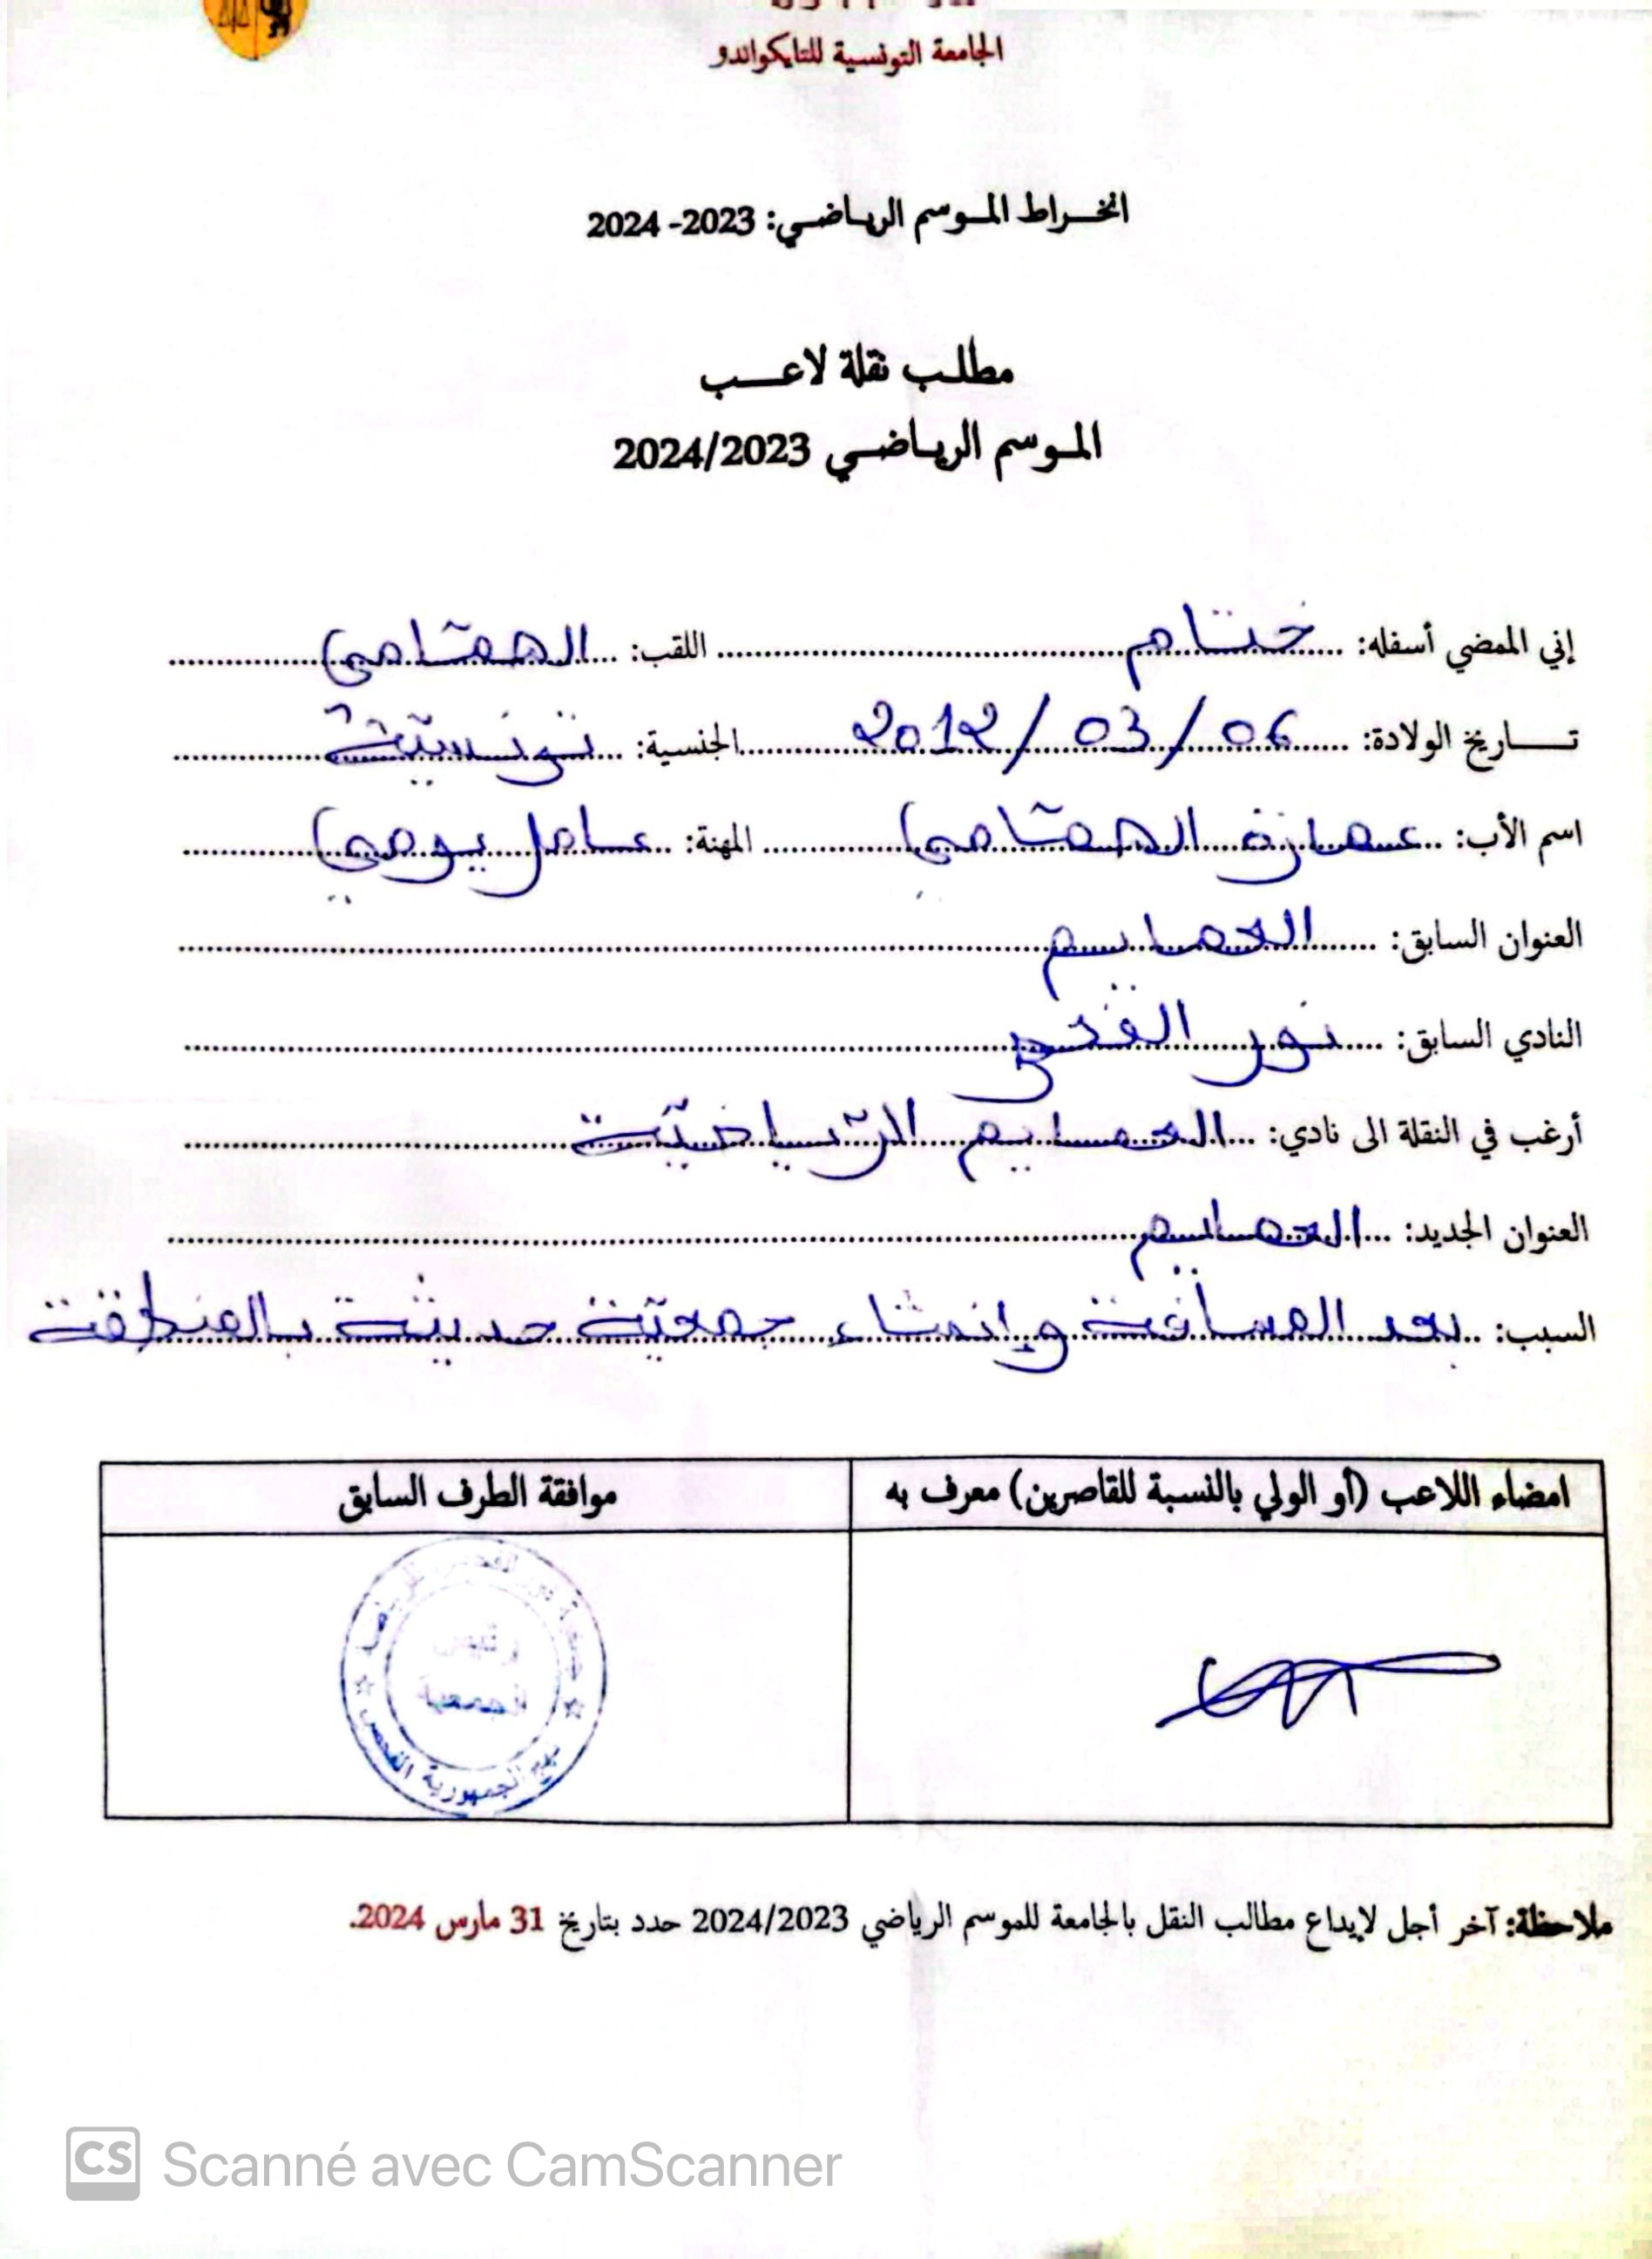 الجامعة التونسية للتايكواندو
انخراط الموسم الرياضي: 2023- 2024
مطلب نقلة لاعب
الموسم الرياضي 2024/2023
إني الممضي أسفله: ختام اللقب: الهمّامي
تاريخ الولادة: 06/03/2012 الجنسية: تونسيّة
اسم الأب: عمارة الهمّامي المهنة: عامل يومي
العنوان السابق: الحمايم
النادي السابق: نور الفحص
أرغب في النقلة الى نادي: الحمايم الرّياضيّة
العنوان الجديد: الحمايم
السبب: بعد المسافة وإنشاء جمعيّة حديثة بالمنطقة
امضاء اللاعب (أو الولي بالنسبة للقاصرين) معرف به
موافقة الطرف السابق
رئيس
الجمعية
نهج الجمهورية الفحص
ملاحظة: آخر أجل لإيداع مطالب النقل بالجامعة للموسم الرياضي 2024/2023 حدد بتاريخ 31 مارس 2024.
CS Scanné avec CamScanner